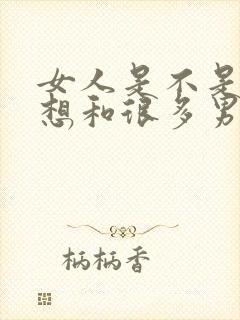 女人是不是
想和很多男
柄柄香